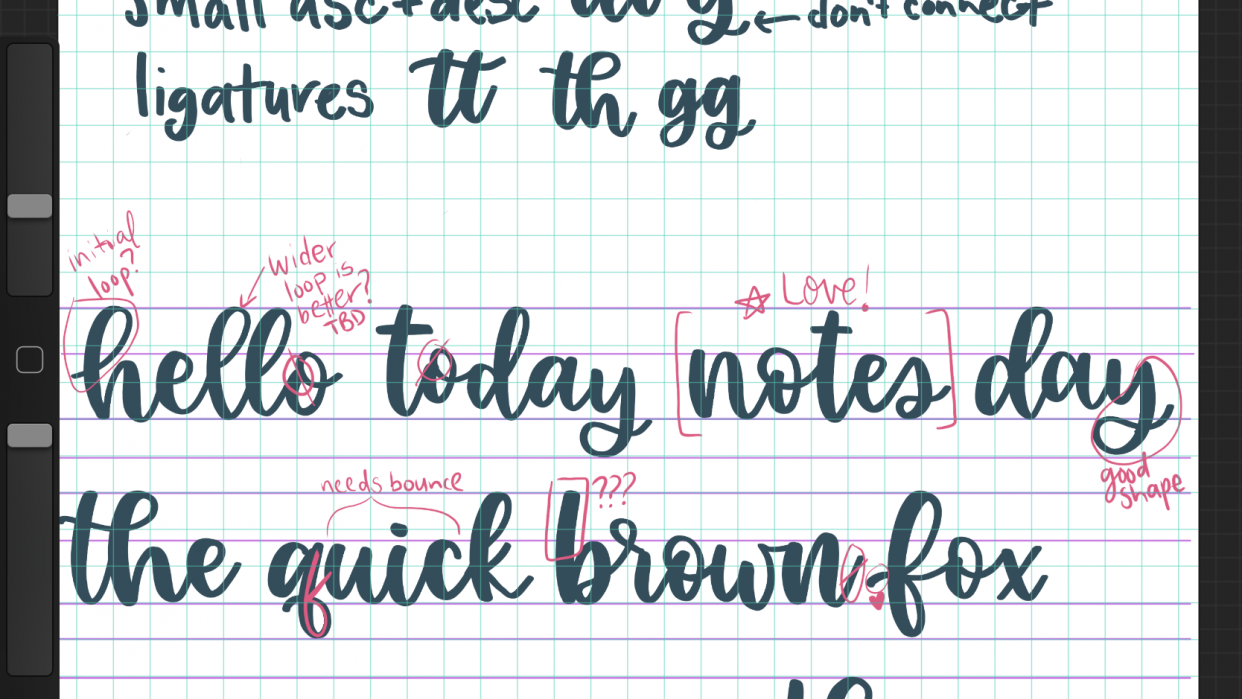 small asc + desc
don't connect
ligatures tt th gg
initial
loop?
wider
loop is
better?
TBD
Love!
hello today [notes] day
good
shape
needs bounce
???
the quick brown fox